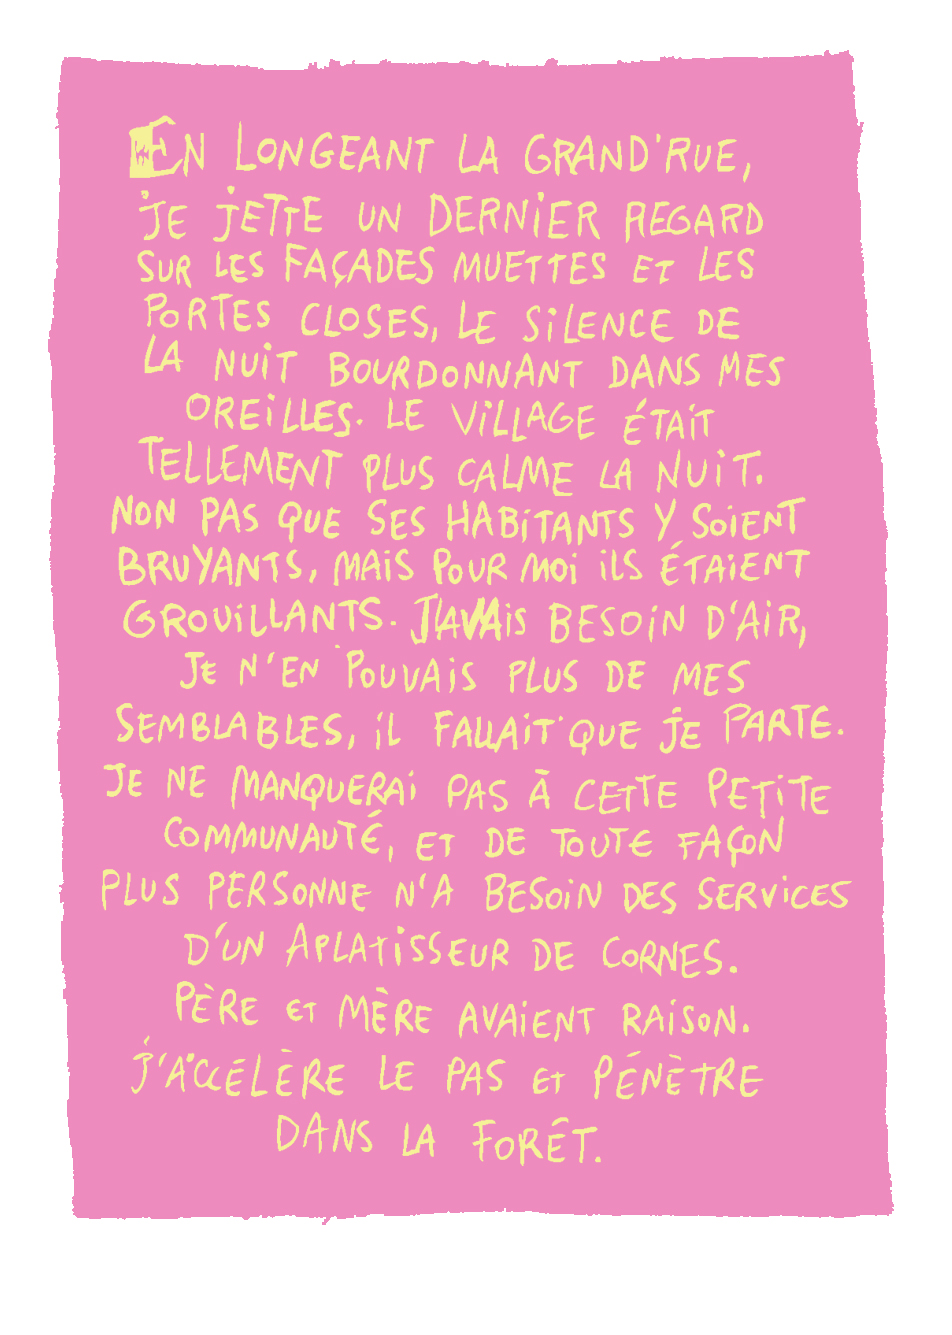 EN LONGEANT LA GRAND'RUE,
JE JETTE UN DERNIER REGARD
SUR LES FAÇADES MUETTES ET LES
PORTES CLOSES, LE SILENCE DE
LA NUIT BOURDONNANT DANS MES
OREILLES. LE VILLAGE ÉTAIT
TELLEMENT PLUS CALME LA NUIT.
NON PAS QUE SES HABITANTS Y SOIENT
BRUYANTS, MAIS POUR MOI ILS ÉTAIENT
GROUILLANTS. J'AVAIS BESOIN D'AIR,
JE N'EN POUVAIS PLUS DE MES
SEMBLABLES, IL FALLAIT QUE JE PARTE.
JE NE MANQUERAI PAS À CETTE PETITE
COMMUNAUTÉ, ET DE TOUTE FAÇON
PLUS PERSONNE N'A BESOIN DES SERVICES
D'UN APLATISSEUR DE CORNES.
PÈRE ET MÈRE AVAIENT RAISON.
J'ACCÉLÈRE LE PAS ET PÉNÈTRE
DANS LA FORÊT.